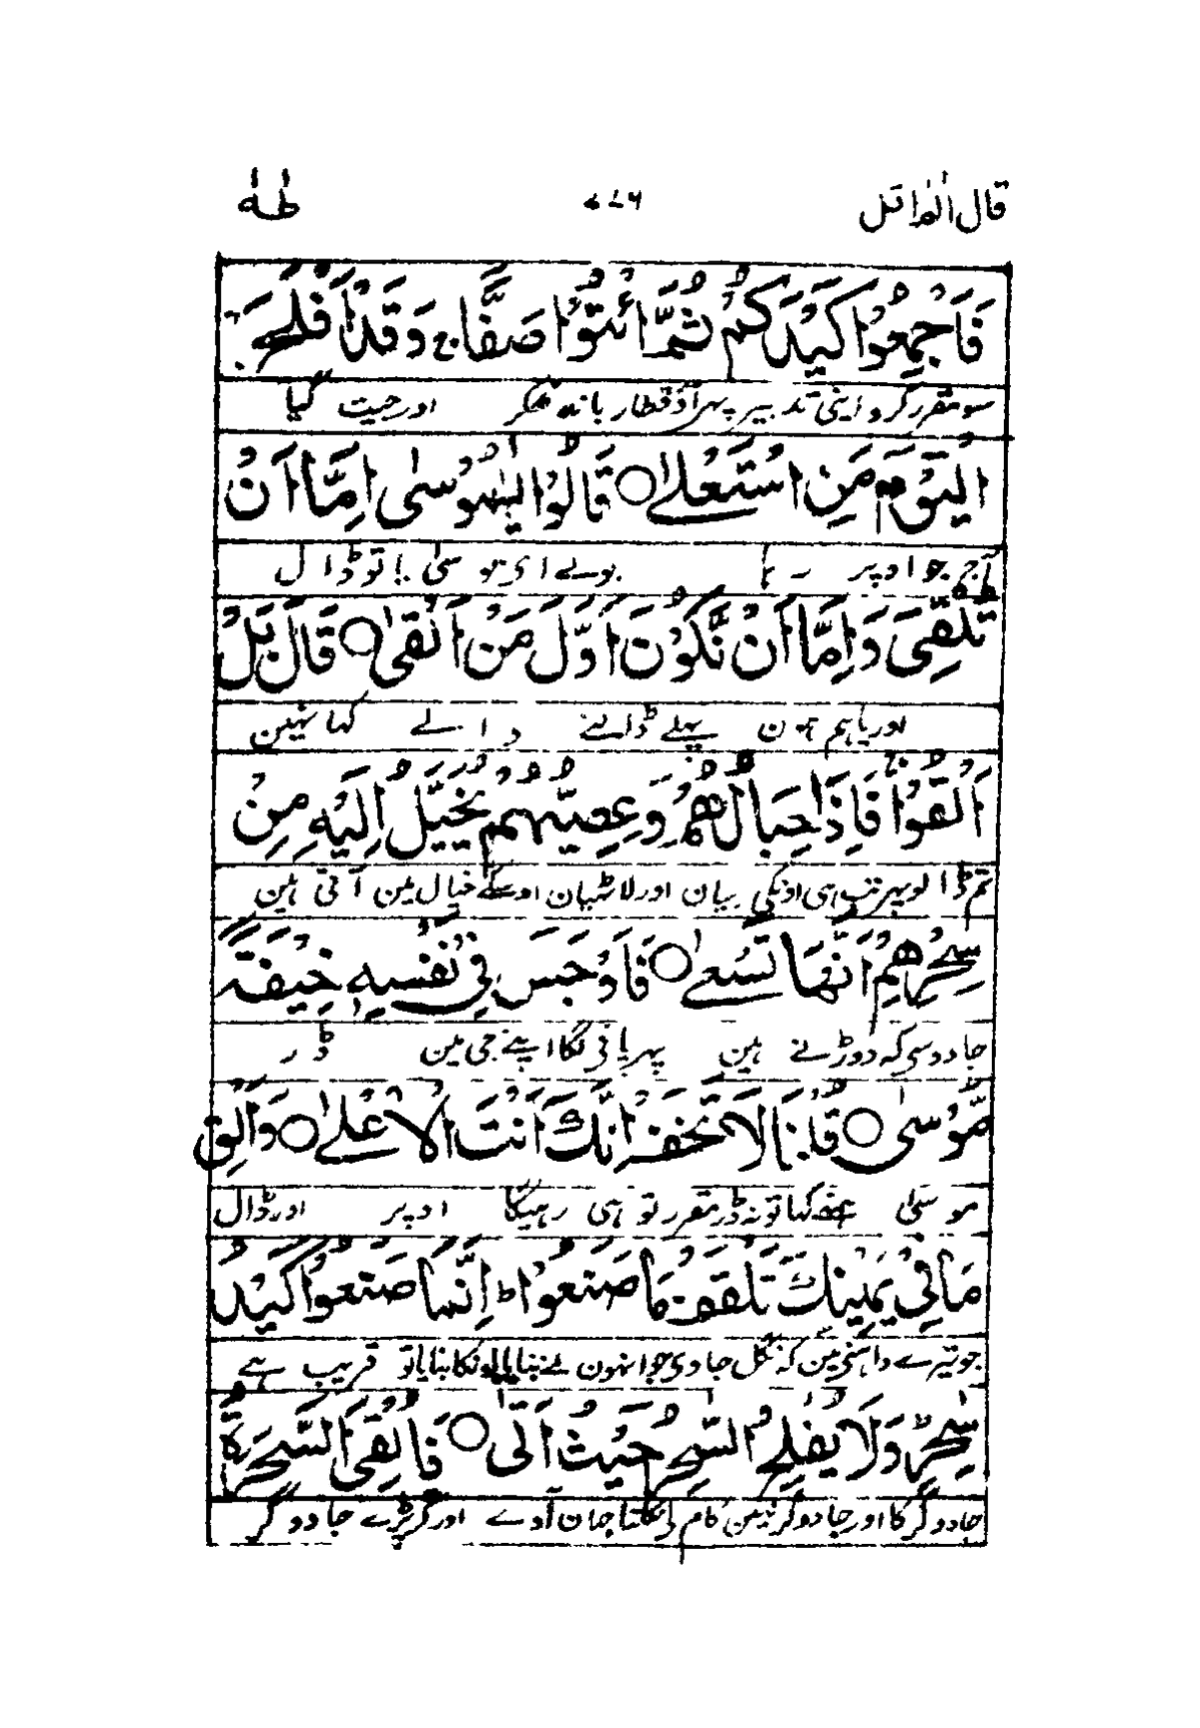 قال الم اقل ۷۷۶ طٰهٰ
فَاَجْمِعُوْا كَيْدَكُمْ ثُمَّ ائْتُوْا صَفًّا ۚ وَقَدْ اَفْلَحَ
سو مقرر کرو اپنی تدبیر پہر آؤ قطار باندھکر اور جیت گیا
الْيَوْمَ مَنِ اسْتَعْلٰى ○ قَالُوْا يٰمُوْسٰى اِمَّا اَنْ
آج جو اوپر رہا بولے ای موسیٰ یا تو ڈال
تُلْقِيَ وَاِمَّا اَنْ نَّكُوْنَ اَوَّلَ مَنْ اَلْقٰى ○ قَالَ بَلْ
اور یا ہم ہون پہلے ڈالنے والے کہا نہین
اَلْقُوْا ۚ فَاِذَا حِبَالُهُمْ وَعِصِيُّهُمْ يُخَيَّلُ اِلَيْهِ مِنْ
تم ڈالو پہر تب ہی اونکی رسیان اور لاٹھیان اوسکے خیال مین آتی ہین
سِحْرِهِمْ اَنَّهَا تَسْعٰى ○ فَاَوْجَسَ فِيْ نَفْسِهٖ خِيْفَةً
جادو سی کہ دوڑتے ہین پہر پانے لگا اپنے جی مین ڈر
مُّوْسٰى ○ قُلْنَا لَا تَخَفْ اِنَّكَ اَنْتَ الْاَعْلٰى ○ وَاَلْقِ
موسیٰ ہمنے کہا تو نہ ڈر مقرر تو ہی رہیگا اوپر اور ڈال
مَا فِيْ يَمِيْنِكَ تَلْقَفْ مَا صَنَعُوْا ۭ اِنَّمَا صَنَعُوْا كَيْدُ
جو تیرے داہنی مین کہ نگل جاوی جو انہون نے بنایا اونکا بنایا تو فریب ہے
سٰحِرٍ ۭ وَلَا يُفْلِحُ السّٰحِرُ حَيْثُ اَتٰى ○ فَاُلْقِيَ السَّحَرَةُ
جادوگر کا اور جادوگر نہین کام لے نکلتا جہان آوے اور گر پڑے جادوگر